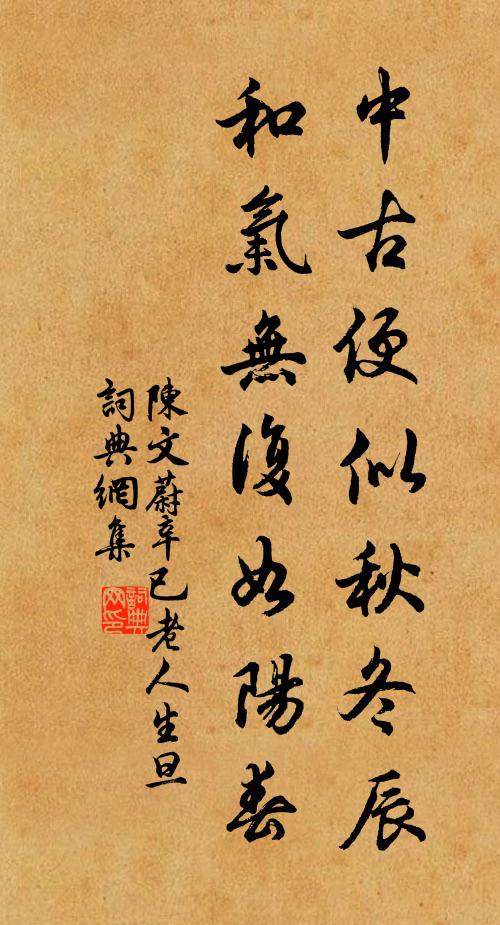 中古便似秋冬辰
和氣無復如陽春
陳文蔚辛巳老人生旦
詞典網集
詞典网印